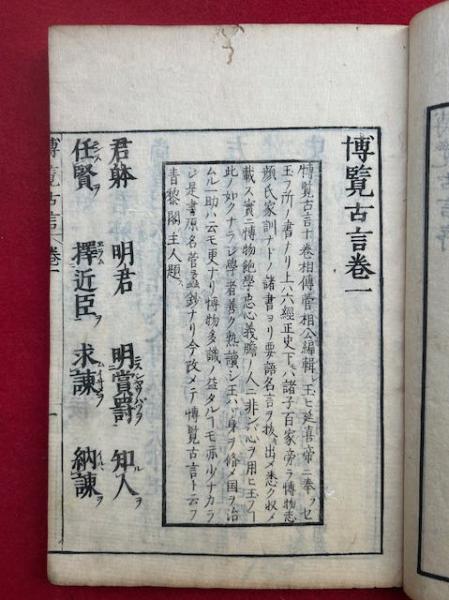 博覽古言卷一
博覽古言十卷相傳菅相公編輯シ玉ヒ延喜帝ニ奉ラセ
玉フ所ノ書ナリ上ハ六經正史下ハ諸子百家旁ラ博物志
顔氏家訓ナドノ諸書ヨリ要語名言ヲ拔出メ悉ク收メ
載ス實ニ博物絶學忠心義膽ノ人ニ非ンバ心ヲ用ヒ玉フ
此ノ如クナランヤ學者善ク熟讀シ玉ハヾ身ヲ修メ国ヲ治
ムル一助ハ云モ更ナリ博物多識ノ益タルヿモ亦少ナカラ
ジ是書原名菅蠡鈔ナリ今改メテ博覽古言ト云フ
青黎閣主人題
君躰 明君 明賞罰 知人ルヲ
任賢ヲ 擇近臣ヲ 求諫ヲ 納諫ヲ
博覽古言 卷一